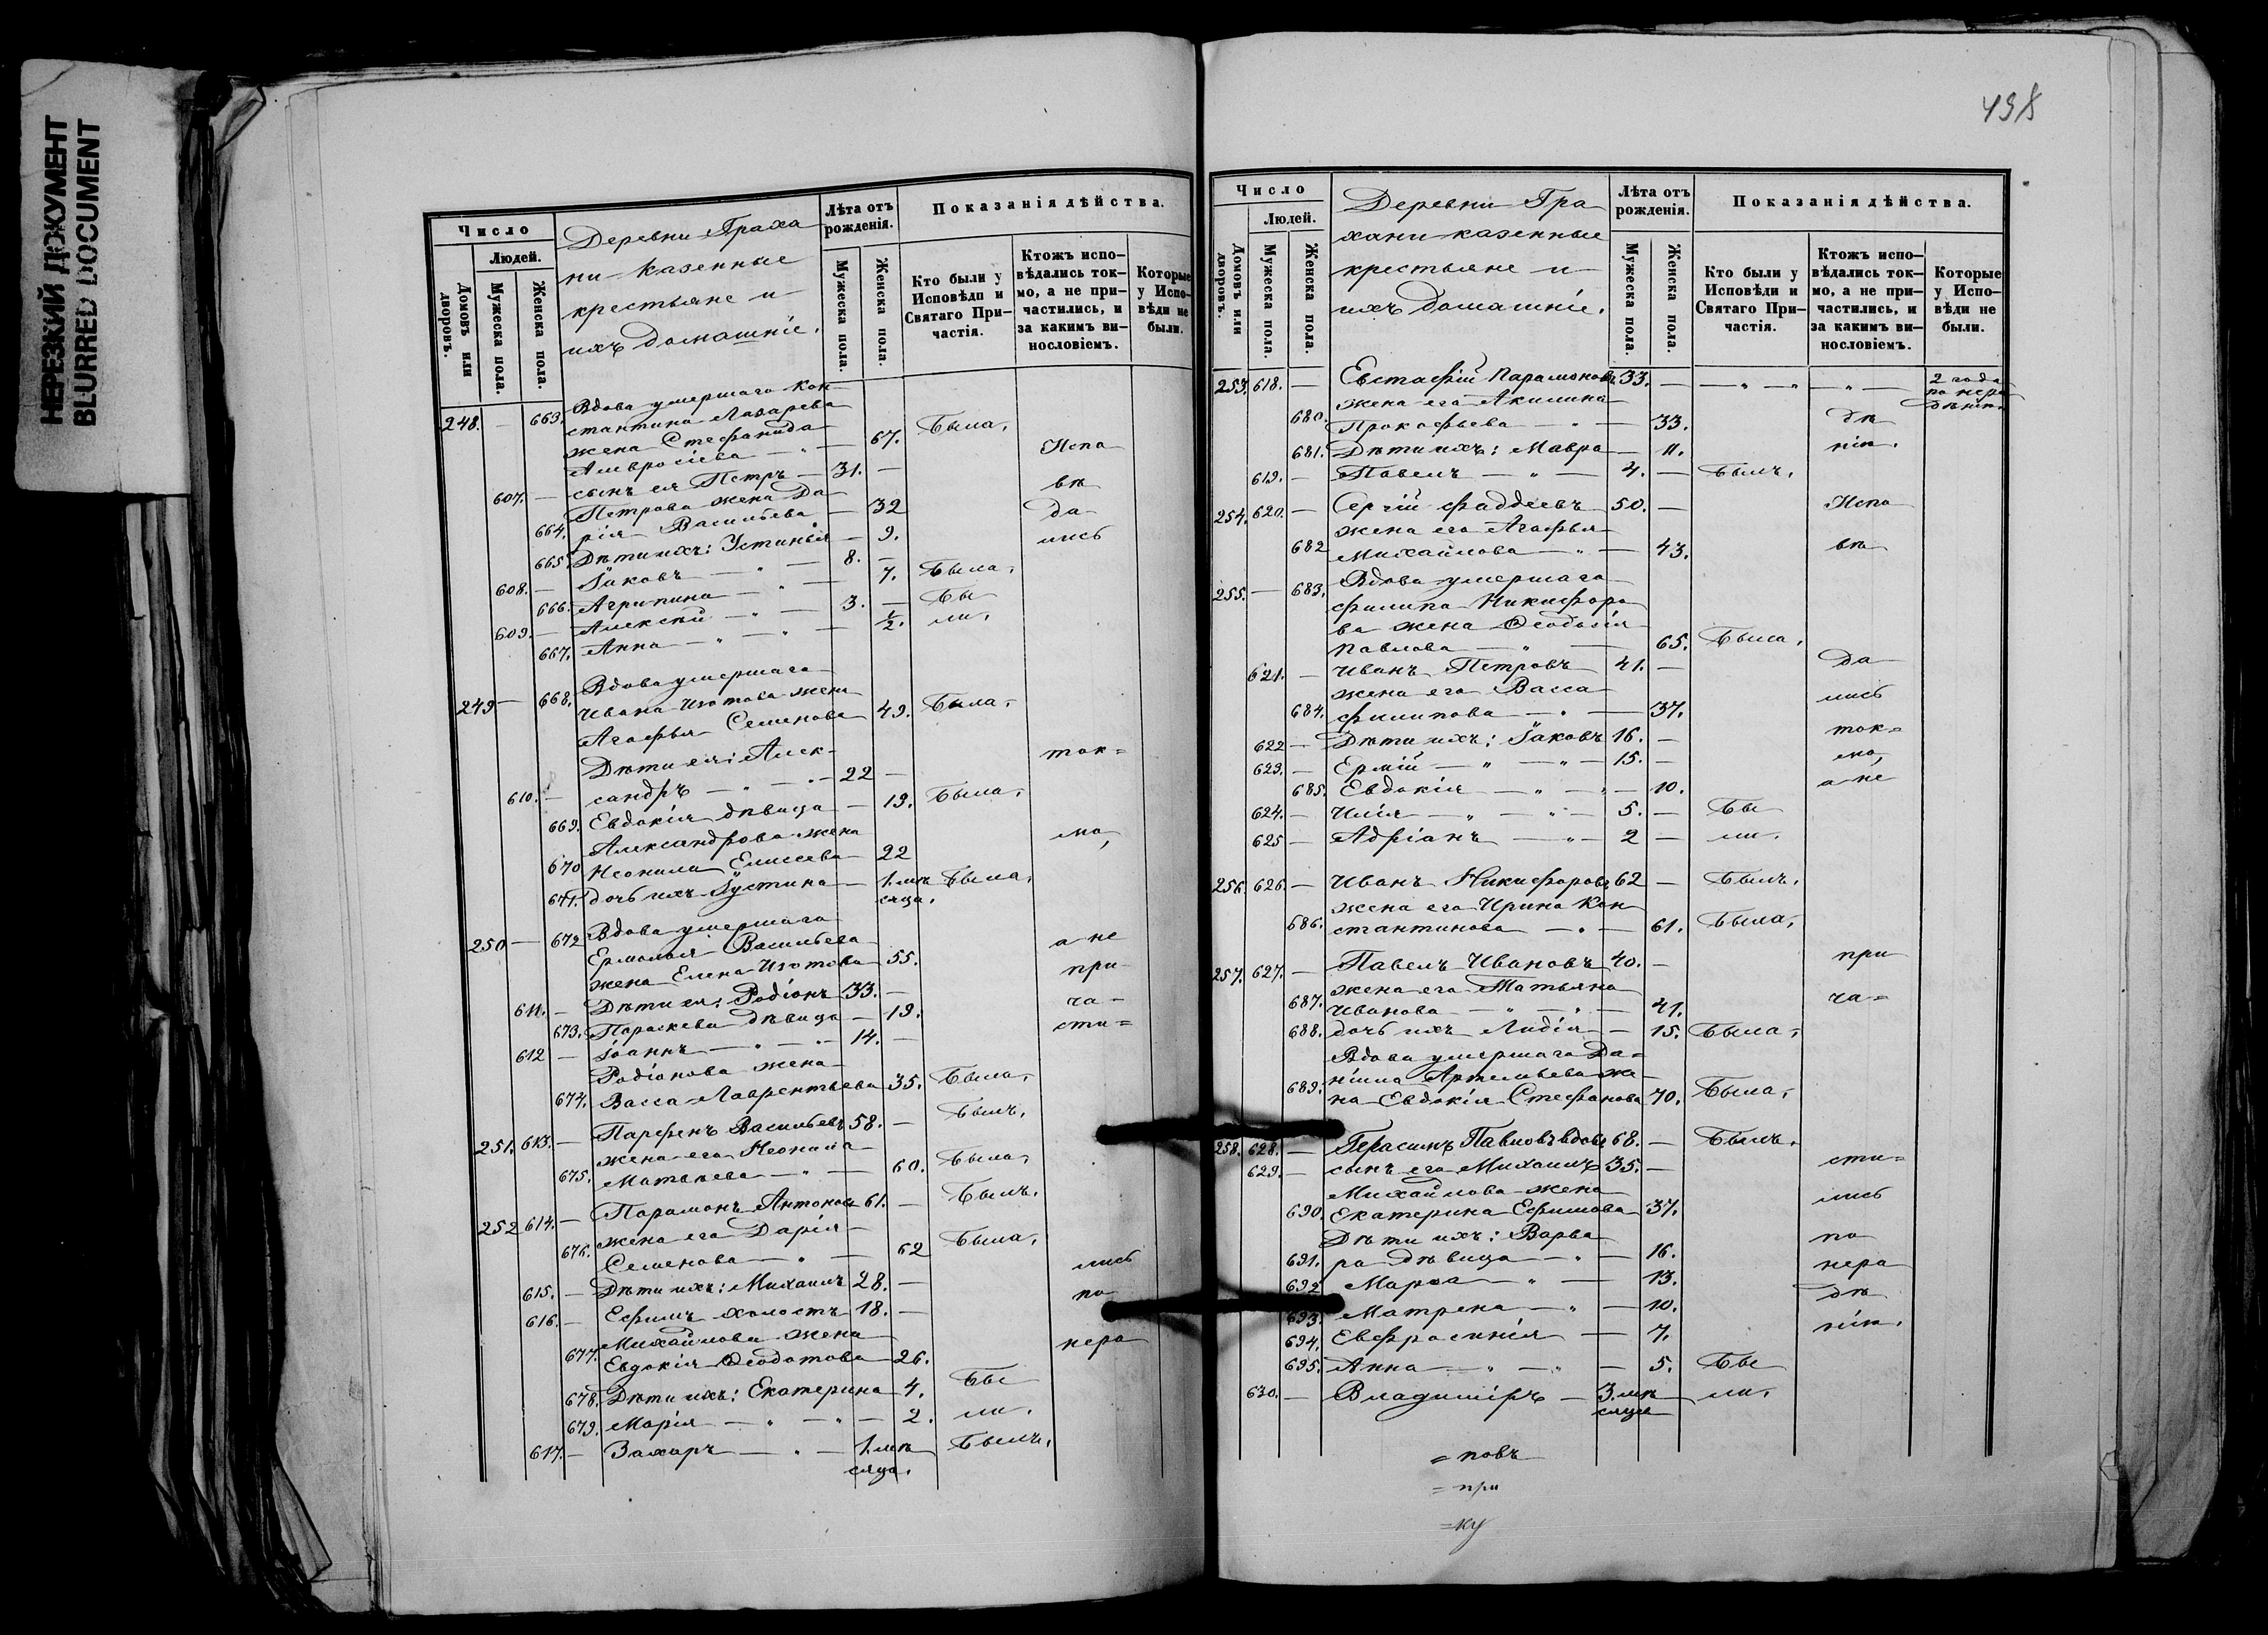 НЕРЕЗКИЙ ДОКУМЕНТ
BLURRED DOCUMENT
Число
Людей.
Домовъ или дворовъ.
Мужеска пола.
Женска пола.
Деревни Граха
ни казенные
крестьяне и
ихъ домашніе.
Лѣта отъ рожденія.
Мужеска пола.
Женска пола.
Показанія дѣйства.
Кто были у Исповѣди и Святаго Причастія.
Ктожъ исповѣдались токмо, а не причастились, и за какимъ винословіемъ.
Которые у Исповѣди не были.
248. — 663. Вдова умершаго Кон
стантина Лазарева
жена Стефанида
Амвросіева — 67. Была.
Испо
607. — сынъ ея Петръ — 31. —
вѣ
Петрова жена Да
664. рія Васильева — 32
да
665. Дѣти ихъ: Устинья — 9.
лись
608. — Іаковъ — „ — 8. —
666. Агрипина — „ — 7. Была.
609. — Алексѣй — „ — 3. — Бы
667. Анна — „ — „ — 1/2. ли.
249 — 668. Вдова умершаго
Ивана Изотова жена
Агафья Семенова 49. Была.
Дѣти ея: Алек-
ток=
610. — сандръ — „ — 22 —
669. Евдокія дѣвица — 19. Была.
Александрова жена
мо,
670 Неонила Елисеева 22
671. дочь ихъ Іустина — 1. мѣ Была.
сяца.
250 — 672 Вдова умершаго
Ермолья Васильева
а не
жена Елена Изотова 55.
при-
611. — Дѣти ея: Родіонъ 33. —
ча-
673. Параскева дѣвица — 19.
сти=
612 — Іоаннъ — „ — 14. —
Родіонова жена
674. Васса Лаврентьева 35. Была.
251. 613. — Парфенъ Васильевъ 58. — Былъ.
жена его Неонила
675. Матвѣева — „ — 60. Была.
252 614. — Парамонъ Антоновъ 61. — Былъ.
676. жена его Дарія
Семенова — „ — 62 Была.
лись
615. — Дѣти ихъ: Михаилъ 28. —
по
616. — Ефимъ холостъ 18. —
Михайлова жена
нера
677. Евдокія Ѳеодотова 26.
678. Дѣти ихъ: Екатерина 4. Бы
679. Марія — „ — „ — 2. ли.
617. — Захаръ — „ — 1. мѣ Былъ.
сяца.
Число
Людей.
Домовъ или дворовъ.
Мужеска пола.
Женска пола.
Деревни Гра
хани казенные
крестьяне и
ихъ домашніе.
Лѣта отъ рожденія.
Мужеска пола.
Женска пола.
Показанія дѣйства.
Кто были у Исповѣди и Святаго Причастія.
Ктожъ исповѣдались токмо, а не причастились, и за какимъ винословіемъ.
Которые у Исповѣди не были.
253. 618. — Евстафій Парамоновъ 33. — — „ — „ — „ — 2 года
по нера
дѣнію
жена его Акилина
680. Прокофьева — „ — 33.
дѣ
681. Дѣти ихъ: Мавра — 11.
нію.
619. — Павелъ — „ — 4. — Былъ.
254. 620. — Сергій Фаддеевъ 50. —
Испо
жена его Агафья
682 Михайлова — „ — 43.
вѣ
255. — 683. Вдова умершаго
Филипа Никифоро
ва жена Ѳеодосія
Павлова — „ — 65. Была.
621. — Иванъ Петровъ 41. —
да
жена его Васса
лись
684. Филипова — „ — 37.
622 — Дѣти ихъ: Іаковъ 16. —
ток=
623. — Ермій — „ — „ — 15. —
мо,
685. Евдокія — „ — „ — 10.
а не
624. — Илія — „ — „ — 5. — Бы
625 — Адріанъ — „ — 2 — ли.
256. 626. — Иванъ Никифоровъ 62 — Былъ.
жена его Ирина Кон
686. стантинова — „ — 61. Была.
257. 627. — Павелъ Ивановъ 40. —
при
жена его Татьяна
687. Иванова — „ — 41.
ча=
688. дочь ихъ Лидія — 15. Была.
Вдова умершаго Да=
689. ніила Артемьева же
на Евдокія Стефанова 70. Была.
258. 628. — Герасимъ Павловъ вдовъ 68. — Былъ.
629. — сынъ его Михаилъ 35. —
сти=
Михайлова жена
лись
690. Екатерина Ефимова 37.
Дѣти ихъ: Варва
по
691. ра дѣвица — „ — 16.
нера
692 Марѳа — „ — 13.
дѣ
693. Матрена — „ — 10.
нію.
694. Евфросинія — 7.
695. Анна — „ — „ — 5. Бы
630. — Владиміръ — 3. мѣ ли.
сяца
= повъ
= при
= ку